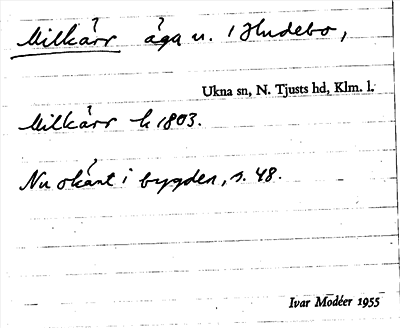 Milkärr äga u. Hudebo,
Ukna sn, N. Tjusts hd, Klm. l.
Milkärr k 1803.
Nu okänt i bygden, s. 48.
Ivar Modéer 1955